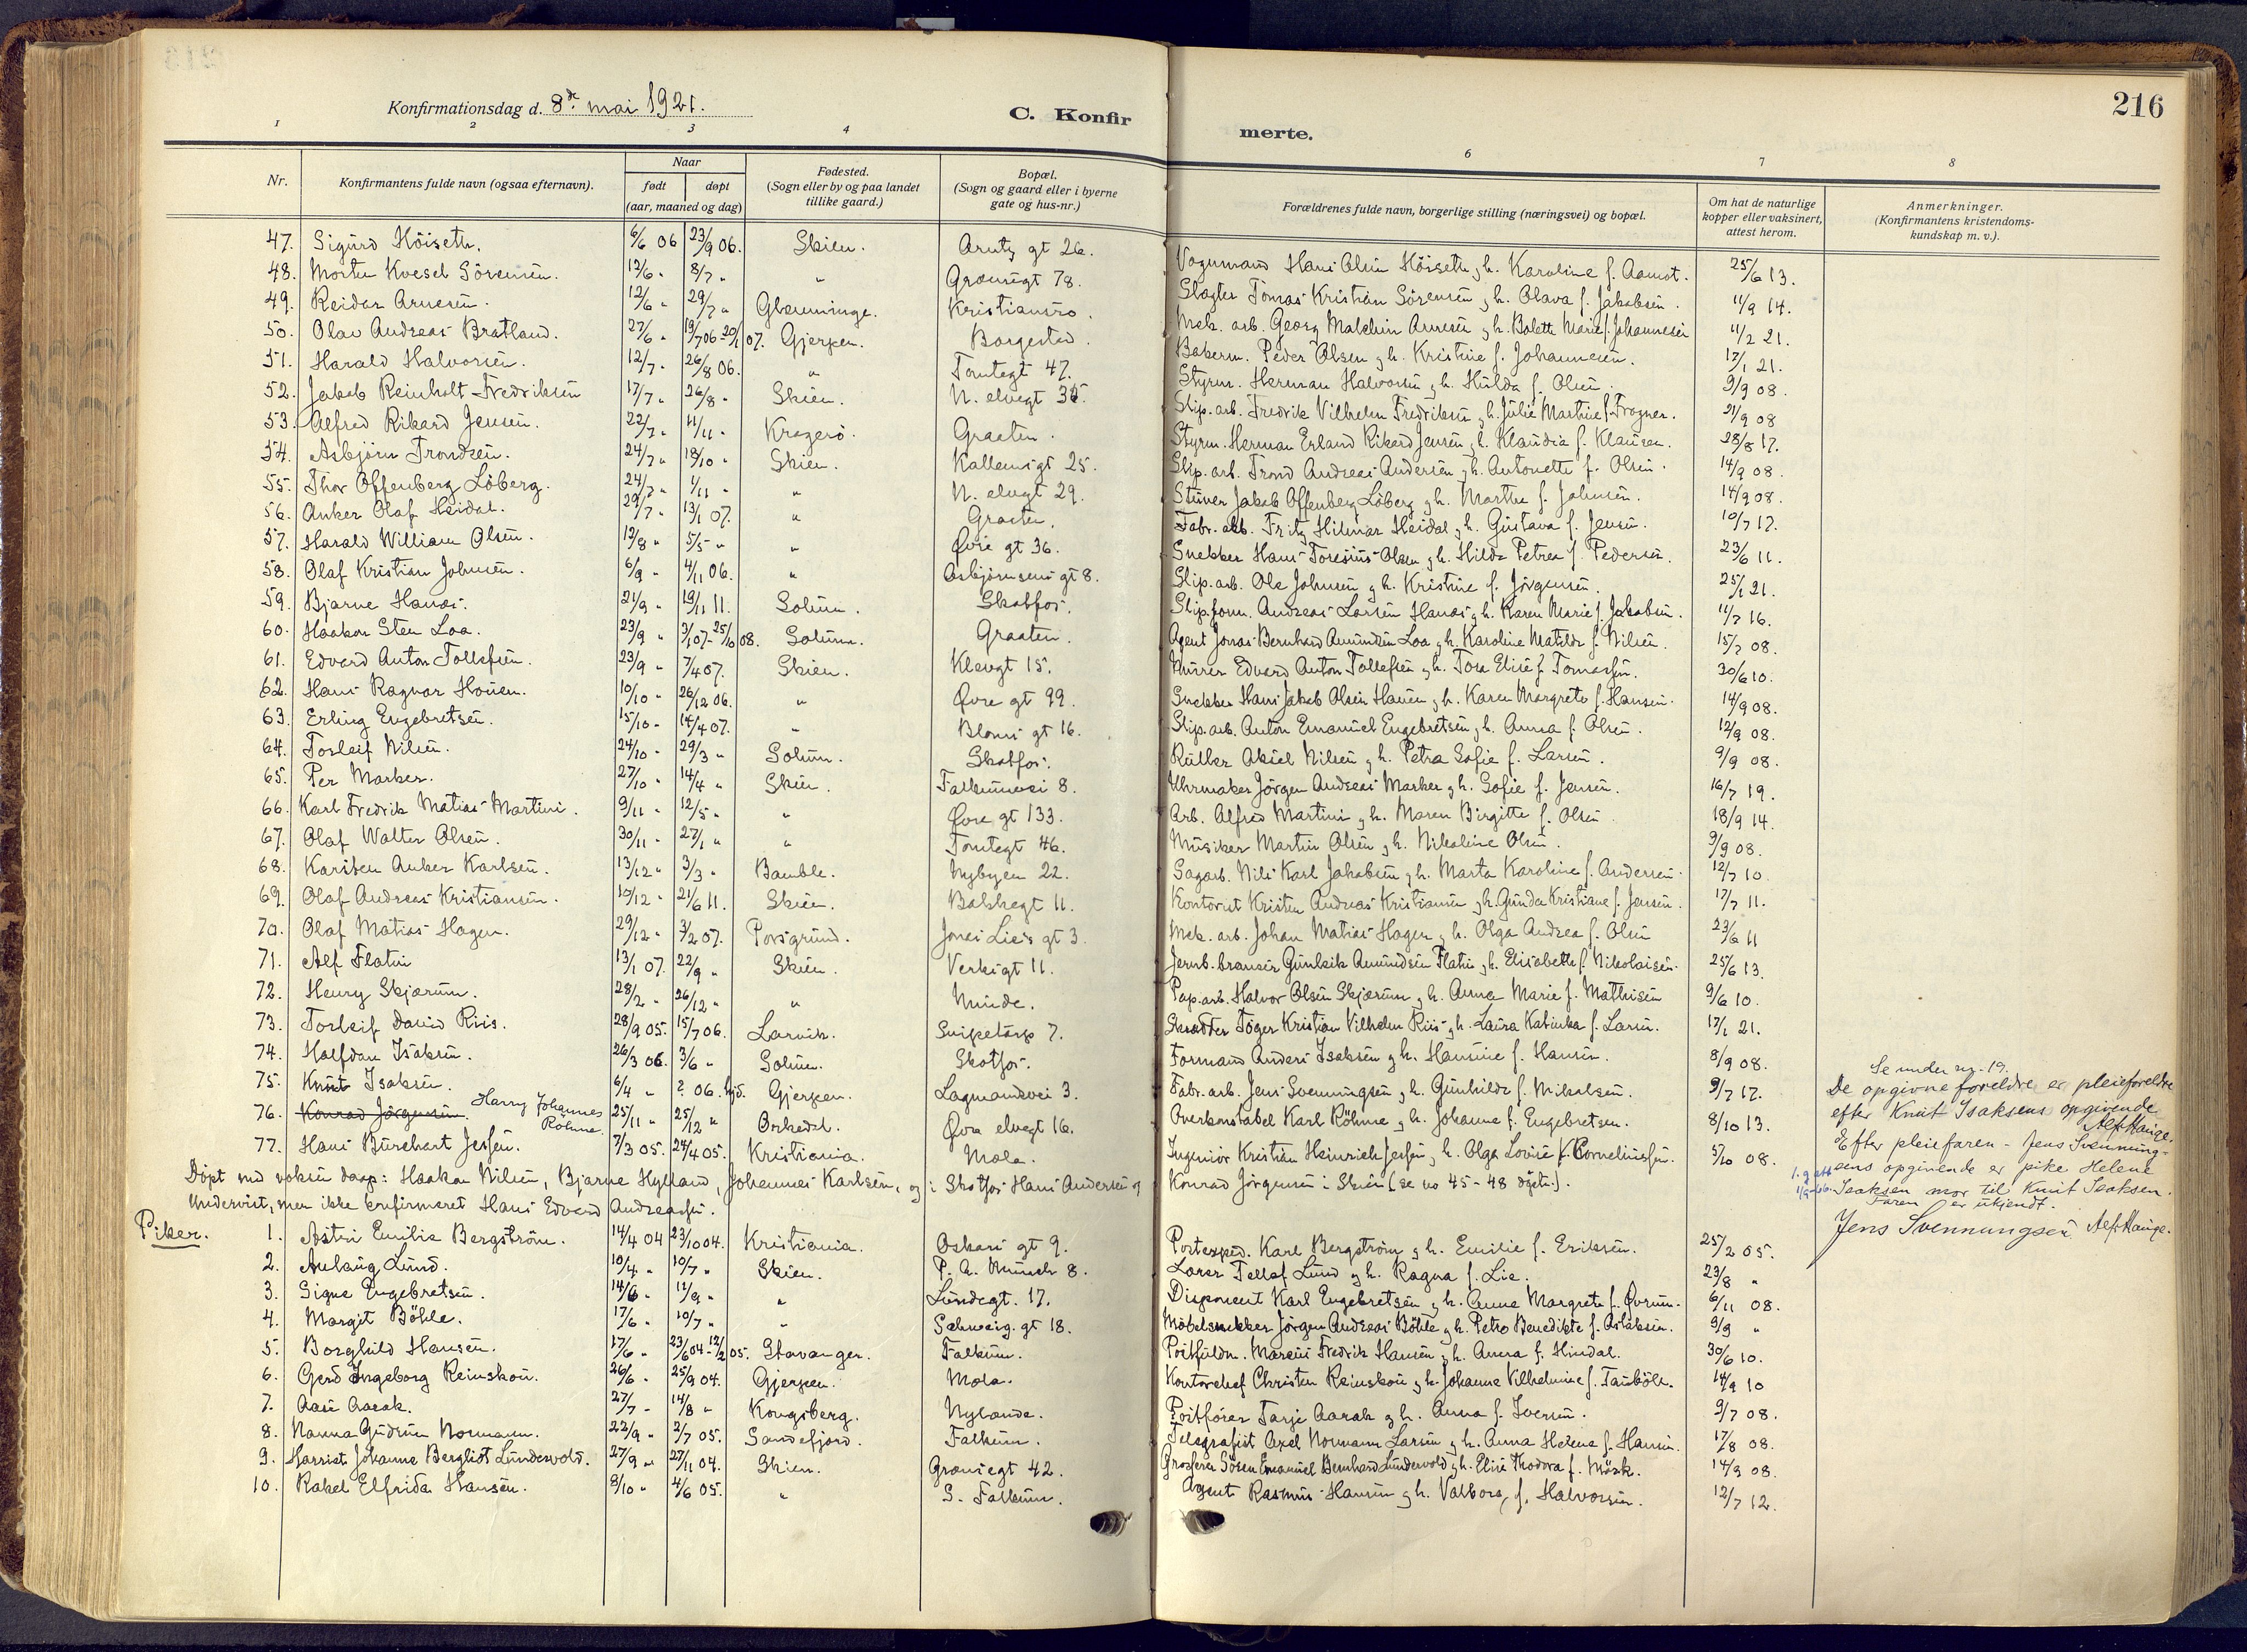 216
Konfirmationsdag d. 8de mai 1921.
C. Konfirmerte.
1 2 3 4 6 7 8
Nr. Konfirmantens fulde navn (ogsaa efternavn). Naar født døpt (aar, maaned og dag) Fødested. (Sogn eller by og paa landet tillike gaard.) Bopæl. (Sogn og gaard eller i byerne gate og hus-nr.) Forældrenes fulde navn, borgerlige stilling (næringsvei) og bopæl. Om hat de naturlige kopper eller vaksinert, attest herom. Anmerkninger. (Konfirmantens kristendomskundskap m. v.).
47. Sigurd Höiseth. 6/6 06 23/9 06. Skien. Arntz gt 26. Vognmand Hans Olsen Höiseth g.h. Karoline f. Aamot. 25/6 13.
48. Morten Kvesel Sörensen. 12/6 " 8/7 " " Grænsegt 78. Slagter Tomas Kristian Sörensen g.h. Olava f. Jakobsen. 11/9 14.
49. Reidar Arnesen. 12/6 " 29/7 " Glemminge. Kristiansro. Mek. arb. Georg Malchin Arnesen g.h. Bolette Marie f. Johannesen 11/2 21.
50. Olav Andreas Bratland. 27/6 " 19/7 06-20/1 07. Gjerpen. Borgestad. Bakerm. Peder Olsen g.h. Kristine f. Johannesen. 17/1 21.
51. Harald Halvorsen. 12/7 " 26/8 06. " Tomtegt 47. Styrm. Herman Halvorsen g.h. Hulda f. Olsen. 9/9 08.
52. Jakob Reinholt Fredriksen 17/7 " 26/8 " Skien. N. elvegt 35. Slip. arb. Fredrik Vilhelm Fredriksen g.h. Julie Martine f. Frogner. 21/9 08
53. Alfred Rikard Jensen. 22/7 " 11/11 " Kragerö. Graaten. Styrm. Herman Erland Rikard Jensen g.h. Klaudia f. Klausen. 28/8 17.
54. Asbjörn Trondsen. 24/7 " 18/10 " Skien. Kallemsgt 25. Slip. arb. Trond Andreas Andersen g.h. Antonette f. Olsen. 14/9 08.
55. Thor Offenberg Löberg. 24/7 " 1/11 " " N. elvegt 29. Stuver Jakob Offenberg Löberg g.h. Marthe f. Johnsen. 14/9 08.
56. Anker Olaf Heidal. 29/7 " 13/1 07. " Graaten. Fabr. arb. Fritz Hilmar Heidal g.h. Gustava f. Jensen. 10/7 17.
57. Harald William Olsen. 12/8 " 5/5 " " Øvre gt 36. Snekker Hans Toresius Olsen g.h. Hilda Petrea f. Pedersen. 23/6 11.
58. Olaf Kristian Johnsen. 6/9 " 4/11 06. " Asbjörnsens gt 8. Slip. arb. Ole Johnsen g.h. Kristine f. Jörgensen. 25/1 21.
59. Bjarne Hanas. 21/9 " 19/11 11. Solum. Skotfos. Slip. form. Andreas Larsen Hanas g.h. Karen Marie f. Jakobsen. 11/7 16.
60. Haakon Sten Loa. 23/9 " 3/1 07-25/10 08. Solum. Graaten. Agent Jonas Bernhard Amundsen Loa g.h. Karoline Matilde f. Nilsen. 15/7 08.
61. Edvard Anton Tollefsen. 23/9 " 7/4 07. Skien. Klevgt 15. Murer Edvard Anton Tollefsen g.h. Tora Elise f. Tomassen. 30/6 10.
62. Hans Ragnar Hauen. 10/10 " 26/12 06. " Øvre gt 99. Snekker Hans Jakob Olsen Hauen g.h. Karen Margrete f. Hansen. 14/9 08.
63. Erling Engebretsen. 15/10 " 14/4 07. " Bloms gt 16. Slip. arb. Anton Emanuel Engebretsen g.h. Anna f. Olsen. 12/9 08.
64. Torleif Nilsen. 24/10 " 29/3 " Solum. Skotfos. Rulker Aksel Nilsen g.h. Petra Sofie f. Larsen. 9/9 08.
65. Per Marker. 27/10 " 14/4 " Skien. Falkumvei 8. Uhrmaker Jörgen Andreas Marker g.h. Sofie f. Jensen. 16/7 19.
66. Karl Fredrik Matias Martini. 9/11 " 12/5 " " Øvre gt 133. Arb. Alfred Martini g.h. Maren Birgitte f. Olsen. 18/9 14.
67. Olaf Walter Olsen. 30/11 " 27/1 " " Tomtegt 46. Musiker Martin Olsen g.h. Nikoline Olsen. 9/9 08.
68. Karsten Anker Karlsen. 13/12 " 3/3 " Bamble. Nybyen 22. Sagarb. Nils Karl Jakobsen g.h. Marta Karoline f. Andersen. 12/7 10.
69. Olaf Andreas Kristiansen. 10/12 " 21/6 11. Skien. Bakkegt 11. Kontorist Kristen Andreas Kristiansen g.h. Gunda Kristiane f. Jensen. 17/7 11.
70. Olaf Matias Hagen. 29/12 " 3/2 07. Porsgrund. Jonas Lies gt 3. Mek. arb. Johan Matias Hagen g.h. Olga Andrea f. Olsen 23/6 11
71. Alf Flatin 13/1 07. 22/9 " Skien. Verksgt 11. Jernb. bransjer Gunleik Amundsen Flatin g.h. Elisabeth f. Nikolaisen. 25/6 13.
72. Henry Skjærum. 28/2 " 26/12 " " Minde. Pap. arb. Halvor Olsen Skjærum g.h. Anna Marie f. Mathisen 9/6 10.
73. Torleif David Riis. 28/9 05. 15/7 06. Larvik. Snipetorp 7. Skrædder Töger Kristian Vilhelm Riis g.h. Laura Katinka f. Larsen. 17/1 21.
74. Halfdan Isaksen. 26/3 06. 3/6 " Solum. Skotfos. Formand Anders Isaksen g.h. Hansine f. Hansen. 8/9 08.
75. Knut Isaksen. 6/4 " ? 06. hjd. Gjerpen. Lagmandsvei 3. Fabr. arb. Jens Svenningsen g.h. Gunhilde f. Nikolsen. 9/7 17.
76. Konrad Jörgensen. Harry Johannes Röhme 25/11 " 25/12 " Orkedal. Øvre elvegt 16. Overkonstabel Karl Röhme g.h. Johanne f. Engebretsen. 8/10 13.
77. Hans Burchart Jessen. 7/3 05. 24/4 05. Kristiania. Mæla. Ingeniör Kristian Heinrich Jessen g.h. Olga Lovise f. Corneliussen. 5/10 08.
Se under nr. 19.
De opgivne foreldre er pleieforeldre
efter Knut Isaksens opgivende
Alf Hauge.
Efter pleiefaren - Jens Svenningsens opgivende er pike Helene
Isaksen mor til Knut Isaksen.
Faren er ukjendt.
Jens Svenningsen Alf Hauge.
Döpt med voksen daap: Haakon Nilsen, Bjarne Hylland, Johannes Karlsen, og i Skotfos Hans Andersen og Konrad Jörgensen i Skien (se no 45-48 döpte.).
Undervist, men ikke konfirmeret Hans Edvard Andreassen.
Piker. 1. Astri Emilie Bergström. 14/4 04 23/10 04. Kristiania. Oskars gt 9. Postexped. Karl Bergström g.h. Emilie f. Eriksen. 25/2 05.
2. Aulaug Lund. 10/4 " 10/7 " Skien. P. A. Munch 8. Lærer Tellef Lund g.h. Ragna f. Lie. 23/8 "
3. Signe Engebretsen. 14/6 " 11/9 " " Lundegt. 17. Disponent Karl Engebretsen g.h. Anne Margrete f. Øvrum. 6/11 08.
4. Margit Böhle. 17/6 " 10/7 " " Schweig. gt 18. Möbelsnekker Jörgen Andreas Böhle g.h. Petra Benedikte f. Aslaksen. 9/9 "
5. Borghild Hansen. 17/6 " 23/6 04-12/2 05. Stavanger. Falkum. Postfuldm. Marius Fredrik Hansen g.h. Anna f. Hindal. 30/6 10.
6. Gerd Ingeborg Reinskou. 26/6 " 25/9 04. Gjerpen. Mæla. Kontorchef Christen Reinskou g.h. Johanne Vilhelmine f. Fauböle. 14/9 10
7. Aase Aarak. 27/7 " 14/8 " Kongsberg. Nylænde. Postförer Tarje Aarak g.h. Anna f. Iversen. 9/7 08.
8. Nanna Gudrun Normann. 22/9 " 2/7 05. Sandefjord. Falkum. Telegrafist Axel Normann Larsen g.h. Anna Helene f. Hansen. 17/8 08.
9. Harriet Johanne Bergliot Lundevold. 27/9 " 27/11 04. Skien. Grænsegt 42. Grosserer Sören Emanuel Bernhard Lundevold g.h. Elise Thodora f. Mörk. 14/9 08.
10. Rakel Elfrida Hansen. 8/10 " 4/6 05. " S. Falkum. Agent Rasmus Hansen g.h. Valborg f. Halvorsen. 12/7 12.